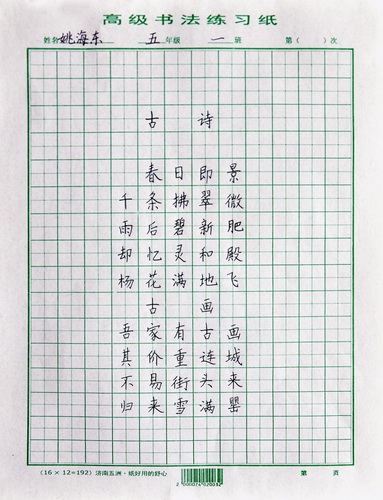 高级书法练习纸
姓名 姚海东 五 年级 一 班 第( )次
古 诗
春日即景
千条拂翠微
雨后碧新肥
却忆灵和殿
杨花满地飞
古 画
吾家有古画
其价重连城
不易街头来
归来雪满罂
(16×12=192) 济南五洲·纸好用的舒心 第 页